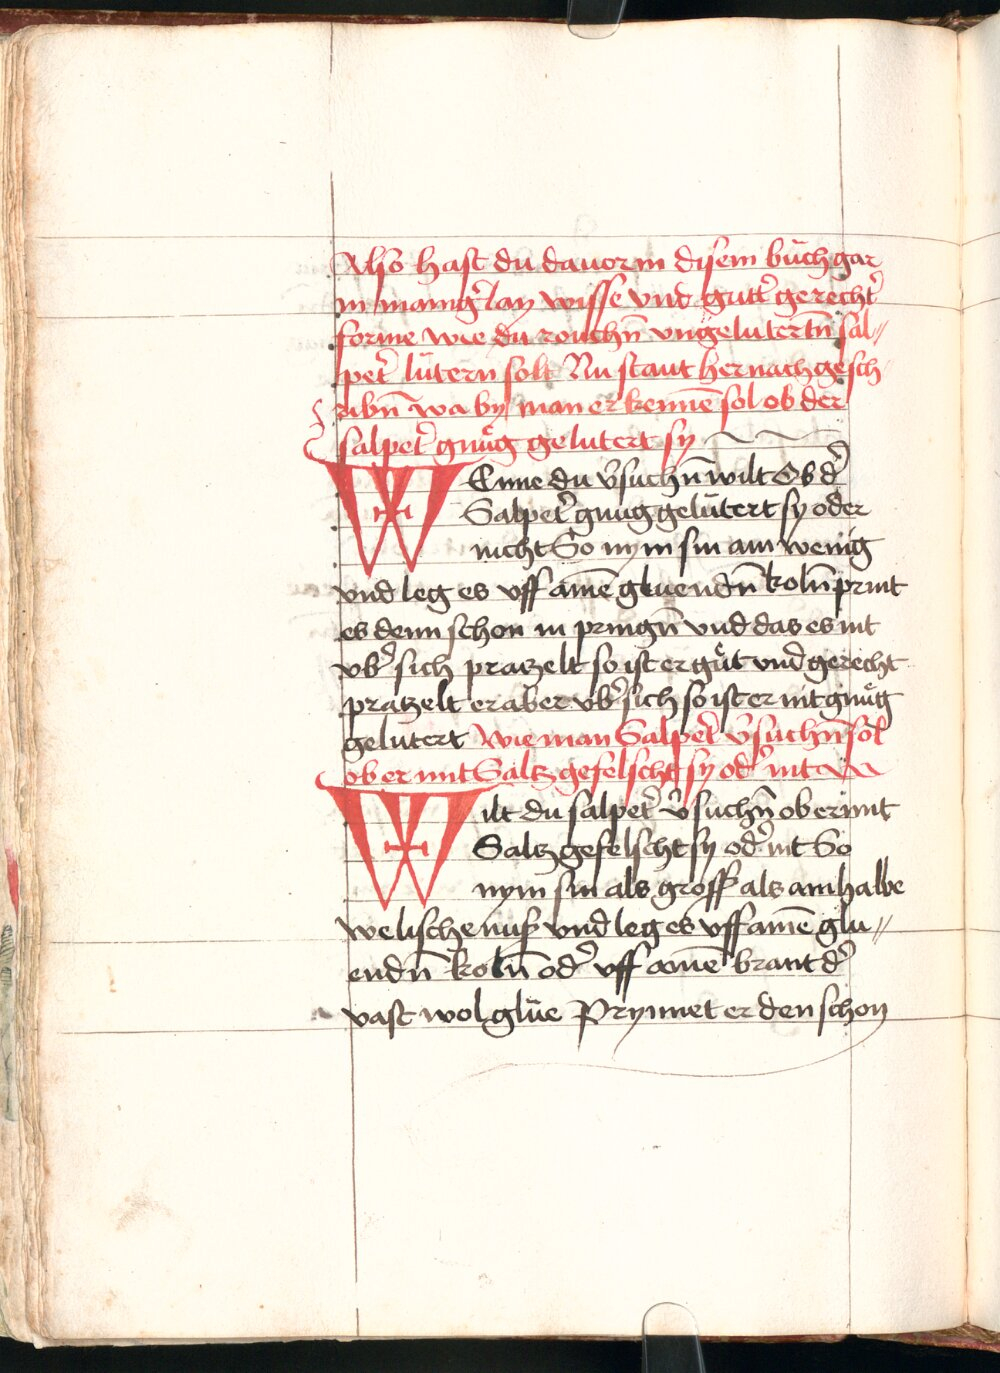 Also hast du davor in disem buͤch gar
in mainger̉lay wisse vnd gutt̉ gerecht̉
forme wie du rouchn̄ vngelutertn̄ sal⸗
pet̉ lüttern solt Nu staut hernach gesch
ribn̄ wa by man erkennē sol ob der
salpet̉ gnuͦg gelutert sy
WEnne du v̉suchn̄ wilt Ob d̉
Salpet̉ gnug gelütert sy oder
nicht So nym sin ain wenig
vnd leg es vff ainē gluendn̄ koln̄ print
es denn schon in pringn̄ vnd das es nit
vb̉ sich pratzelt so ist er guͦt vnd gerecht
pratzelt er aber vb̉ sich so ist er nit gnuͦg
gelutert Wie man Salpet̉ v̉suchn̄ sol
ob er mit Saltz gefelscht sy od̉ nit
Wilt du salpet̉ v̉suchn̄ ob er mit
Saltz gefelscht sy od̉ nit So
nym sin als gross als ain halbe
welische nuß vnd leg es vff ainē glu⸗
endn̄ koln̄ od̉ vff ainē brant d̉
vast wol glüe Prynnet er den schon